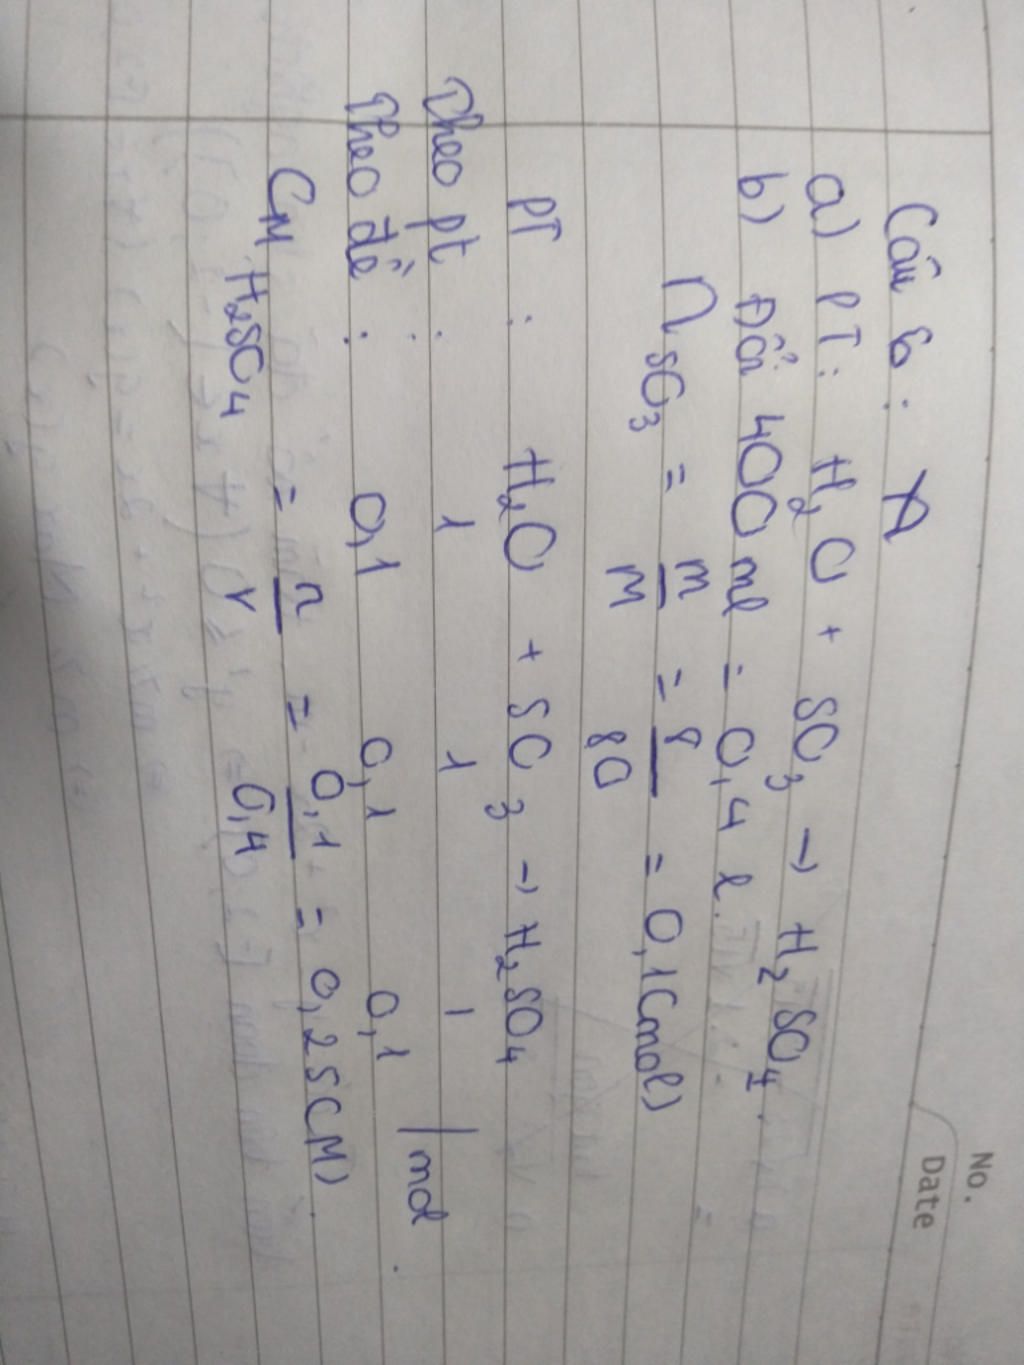 No.
Date
Câu 6:
a) PT: H₂O + SO₃ → H₂SO₄.
b) Đổi 400 ml = 0,4 l.
n SO₃ = m/M = 8/80 = 0,1 (mol)
PT : H₂O + SO₃ → H₂SO₄
Theo pt : 1 1 1 | mol
Theo đề : 0,1 0,1 0,1
CM H₂SO₄ = n/V = 0,1/0,4 = 0,25 (M).